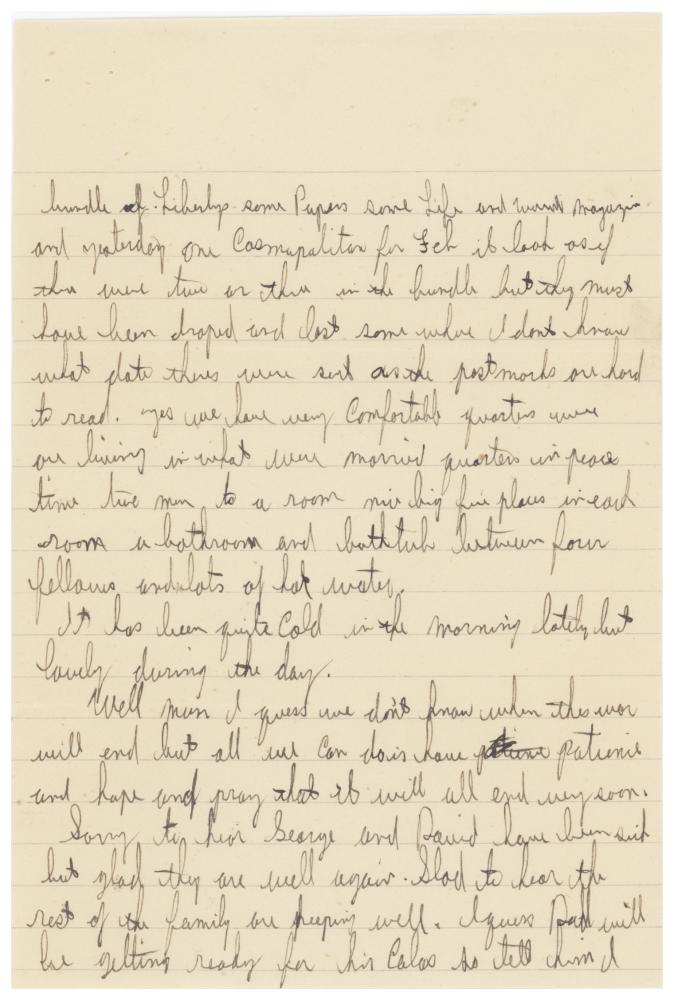 bundle of Libertys some Papers some Life and magazin
and yesterday one Cosmapolitan for Feb it look as if
there were two or three in the bundle but they must
have been droped and lost some where I dont know
what date theres were sent as the postmarks are hard
to read. yes we have very Comfortable quarters were
are living in what were married quarters in peace
time two men to a room nice big fire places in each
room a bathroom and bathtub between four
fellows and lots of hot water.
It has been quite Cold in the morning lately but
lovely during the day.
Well mum I guess we don't know when this war
will end but all we Can do is have patience
and hope and pray that it will all end very soon.
Sorry to hear George and David have been sick
but glad they are well again. Glad to hear the
rest of the family are keeping well. I guess will
be getting ready for his so tell him I